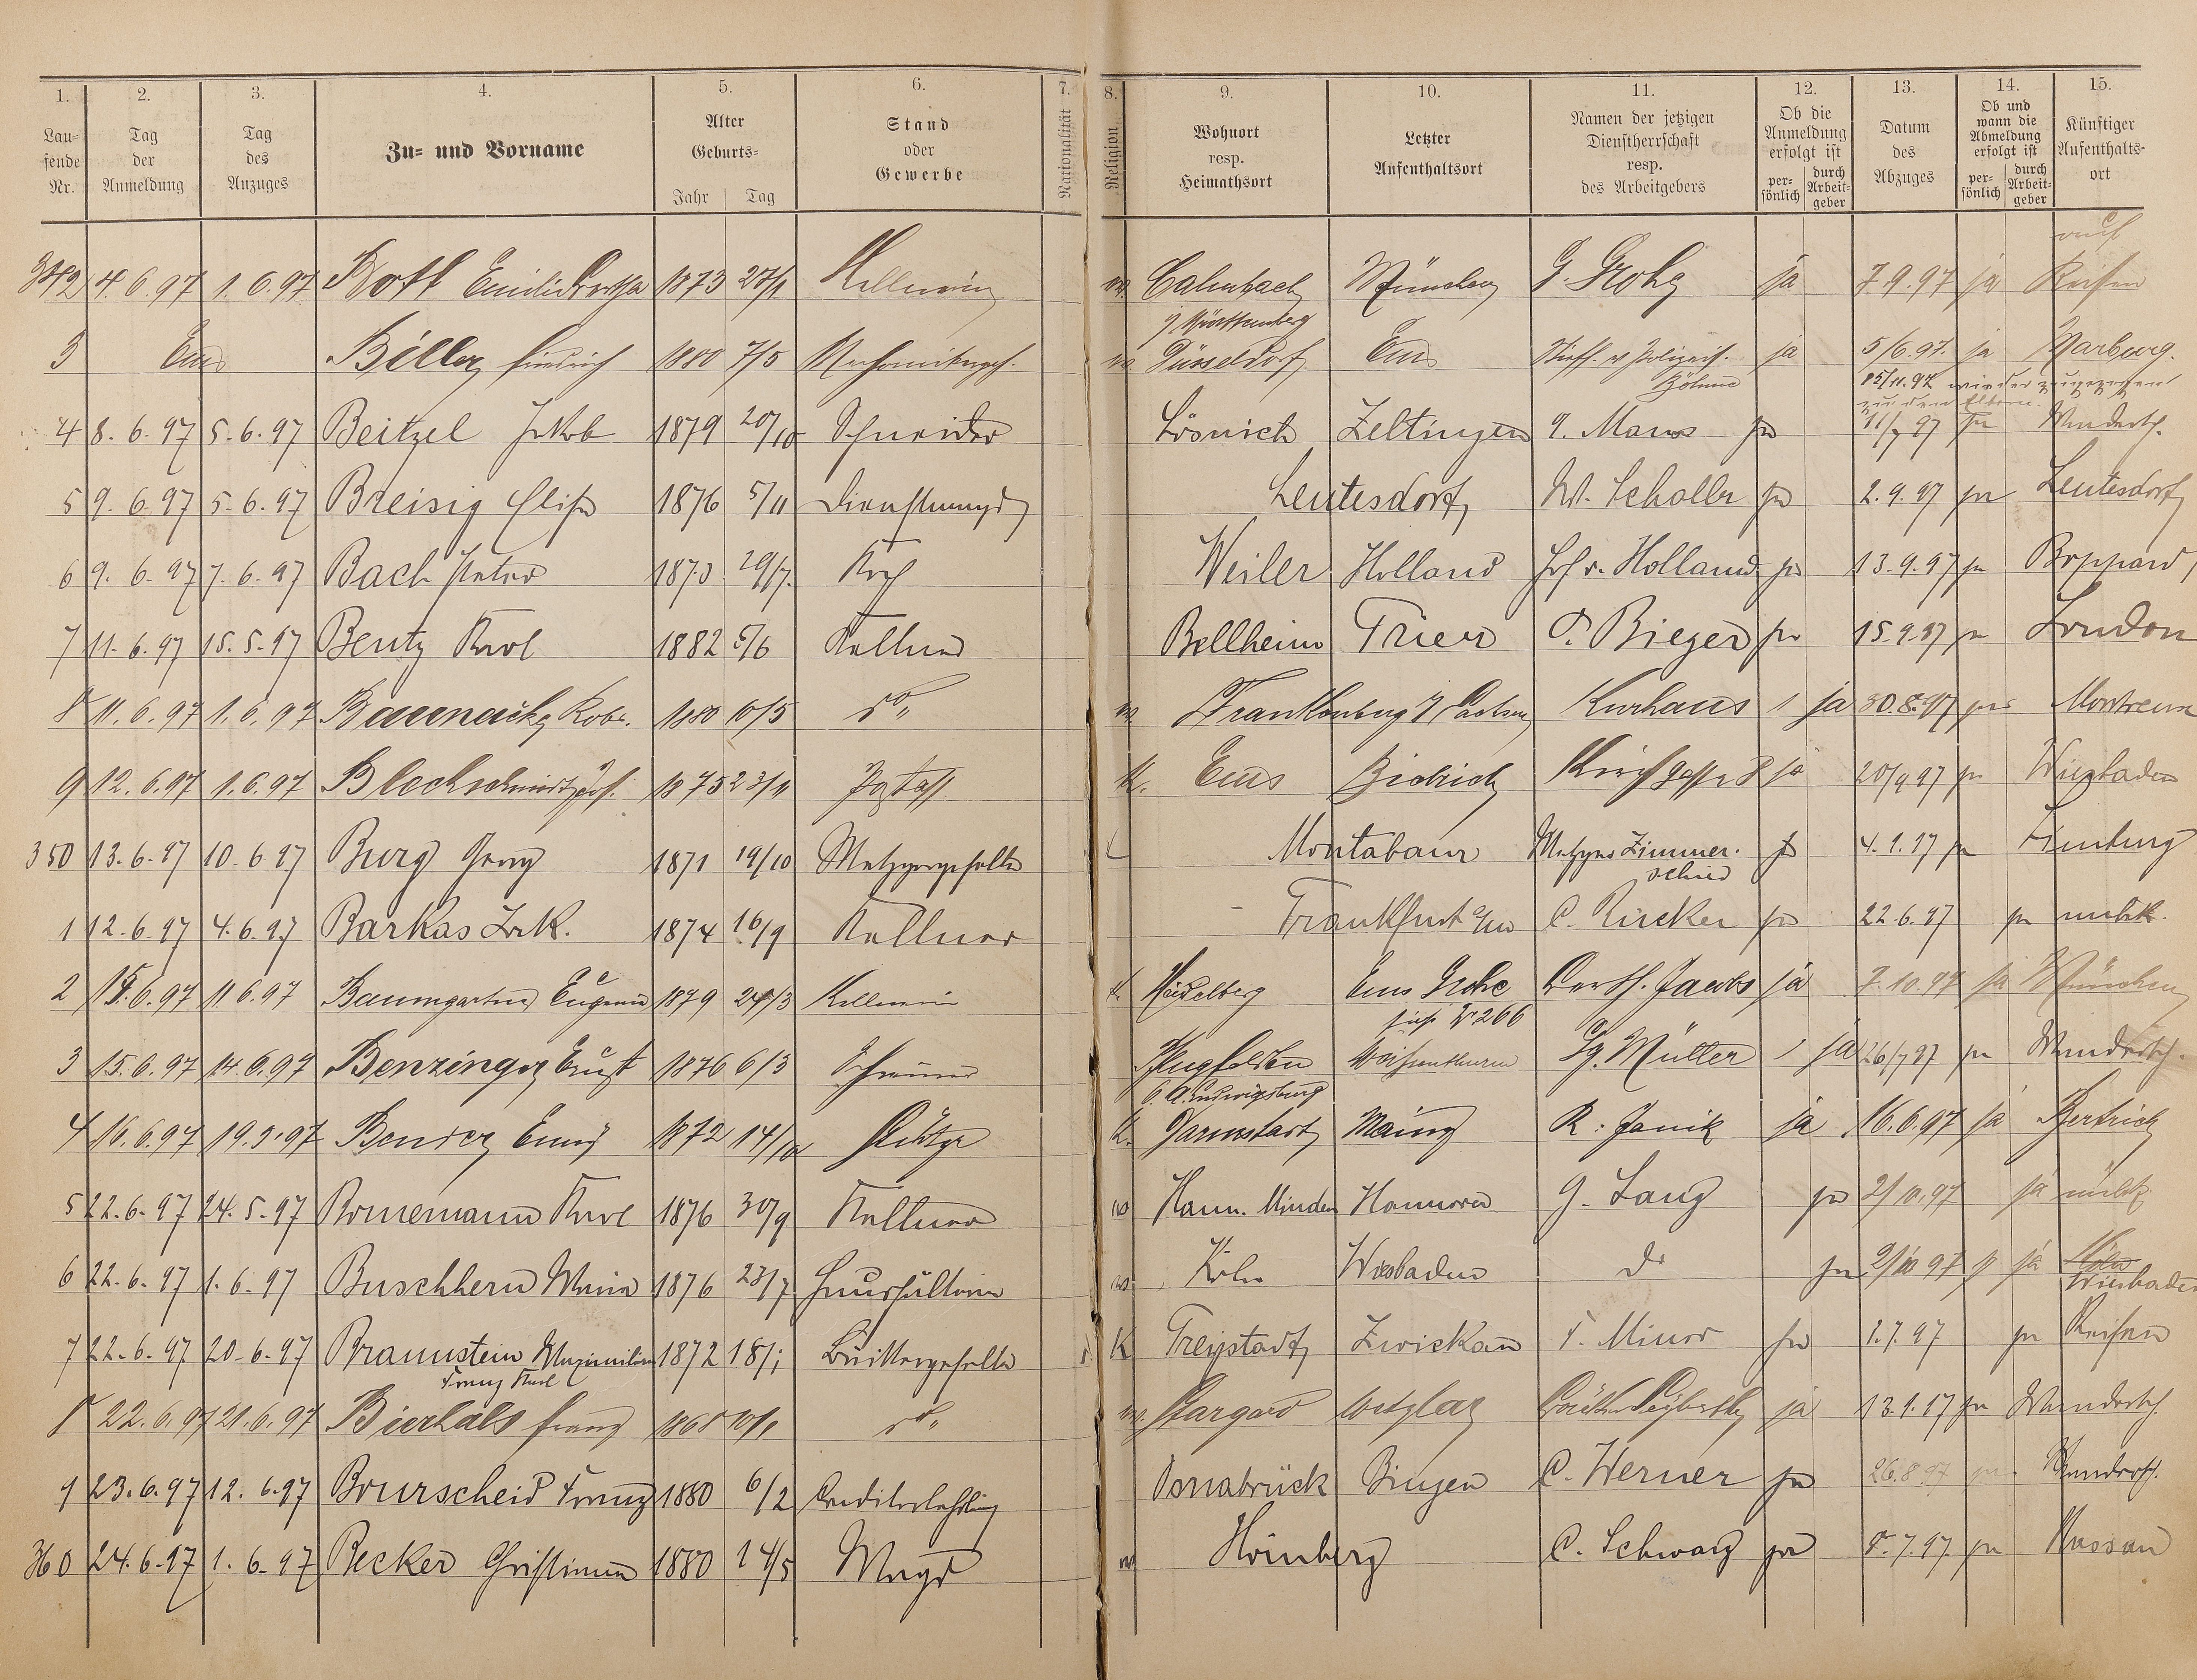 1. 2. 3. 4. 5. 6. 7. 8. 9. 10. 11. 12. 13. 14. 15.
Lau=fende Nr. Tag der Anmeldung Tag des Anzuges Zu= und Vorname Alter Geburts= Jahr Tag Stand oder Gewerbe Nationalität Religion Wohnort resp. Heimathsort Letzter Aufenthaltsort Namen der jetzigen Dienstherrschaft resp. des Arbeitgebers Ob die Anmeldung erfolgt ist per=sönlich durch Arbeit=geber Datum des Abzuges Ob und wann die Abmeldung erfolgt ist per=sönlich durch Arbeit=geber Künftiger Aufenthalts=ort
auf
342 4.6.97 1.6.97 Bott 1873 27/1 Kellnerin Calmbach München G. Grohg ja 7.9.97 ja Reisen
Württemberg
3 Ems Biller Friedrich 1880 7/5 Düsseldorf Ems ja 5/6.97. ja Marburg.
Böhme 15/11.97 wieder zugezogen
zu den Eltern.
4 8.6.97 5.6.97 Beitzel Jakob 1879 20/10 Schneider Lösnich Zeltingen Maus ja 11/7 97 ja Wandersch.
5 9.6.97 5.6.97 Breisig Elise 1876 5/11 Dienstmagd Leutesdorf W. Scholler ja 2.9.97 ja Leutesdorf
6 9.6.97 7.6.97 Bach Peter 1873 29/7. Koch Weiler Holland Hof v. Holland ja 13.9.97 ja Boppard
7 11.6.97 15.5.97 Bentz Karl 1882 5/6 Kellner Bellheim Trier Bieger ja 15.9.97 ja London
8 11.6.97 1.6.97 Baunack Robt. 1880 10/5 do " Frankenberg Sachsen Kurhaus 1 ja 30.8.97 ja Montreux
9 12.6.97 1.6.97 Blechschmidt Jos. 1875 23/11 k. Ems Biebrich Kirchgasse 8 ja 20/9 97 ja Wiesbaden
350 13.6.97 10.6.97 Burg Georg 1871 19/10 Metzgergeselle Montabaur Metzger Zimmer. ja 4.1.97 ja Limburg
schied
1 12.6.97 4.6.97 Barkas 1874 16/9 Kellner Frankfurt a/m C. Rücker ja 22.6.97 ja unbek.
2 15.6.97 11.6.97 Baumgarten Eugenie 1879 24/3 Kellnerin k. Heidelberg Ems Berth. Jacobs ja 7.10.97 ja München
siehe No 266
3 15.6.97 14.6.97 Benzinger Ernst 1876 6/3 Schreiner Pflugfelden Weissenthurm Gg. Müller 1 ja 26/7 97 ja Wandersch.
O. A. Ludwigsburg
4 16.6.97 19.5.97 Bender 1872 14/10 Stütze k. Darmstadt Mainz R. Janik ja 16.6.97 ja Bertrich
5 22.6.97 24.5.97 Bornemann Karl 1876 30/9 Kellner Hann. Minden Hannover G. Lang ja 2/10.97 ja unbek.
6 22.6.97 1.6.97 Buschhern Maria 1876 23/7 Haushälterin Köln Wiesbaden do ja 2/10 97 ja Köln
Wiesbaden
7 22.6.97 20.6.97 Braunstein Maximilian 1872 18/1 k Freystadt Zwickau F. Minor ja 1.7.97 ja Reisen
Franz Karl
8 22.6.97 21.6.97 Bierhals Franz 1868 10/1 do " Stargard Wetzlar ja 13.1.97 ja Wandersch.
9 23.6.97 12.6.97 Bourscheid Franz 1880 6/2 Conditorlehrling Osnabrück Bingen C. Werner ja 26.8.97 ja Wandersch.
360 24.6.97 1.6.97 Becker Christiane 1880 14/5 Magd Hömberg C. Schwarz ja 8.7.97. ja Nassau